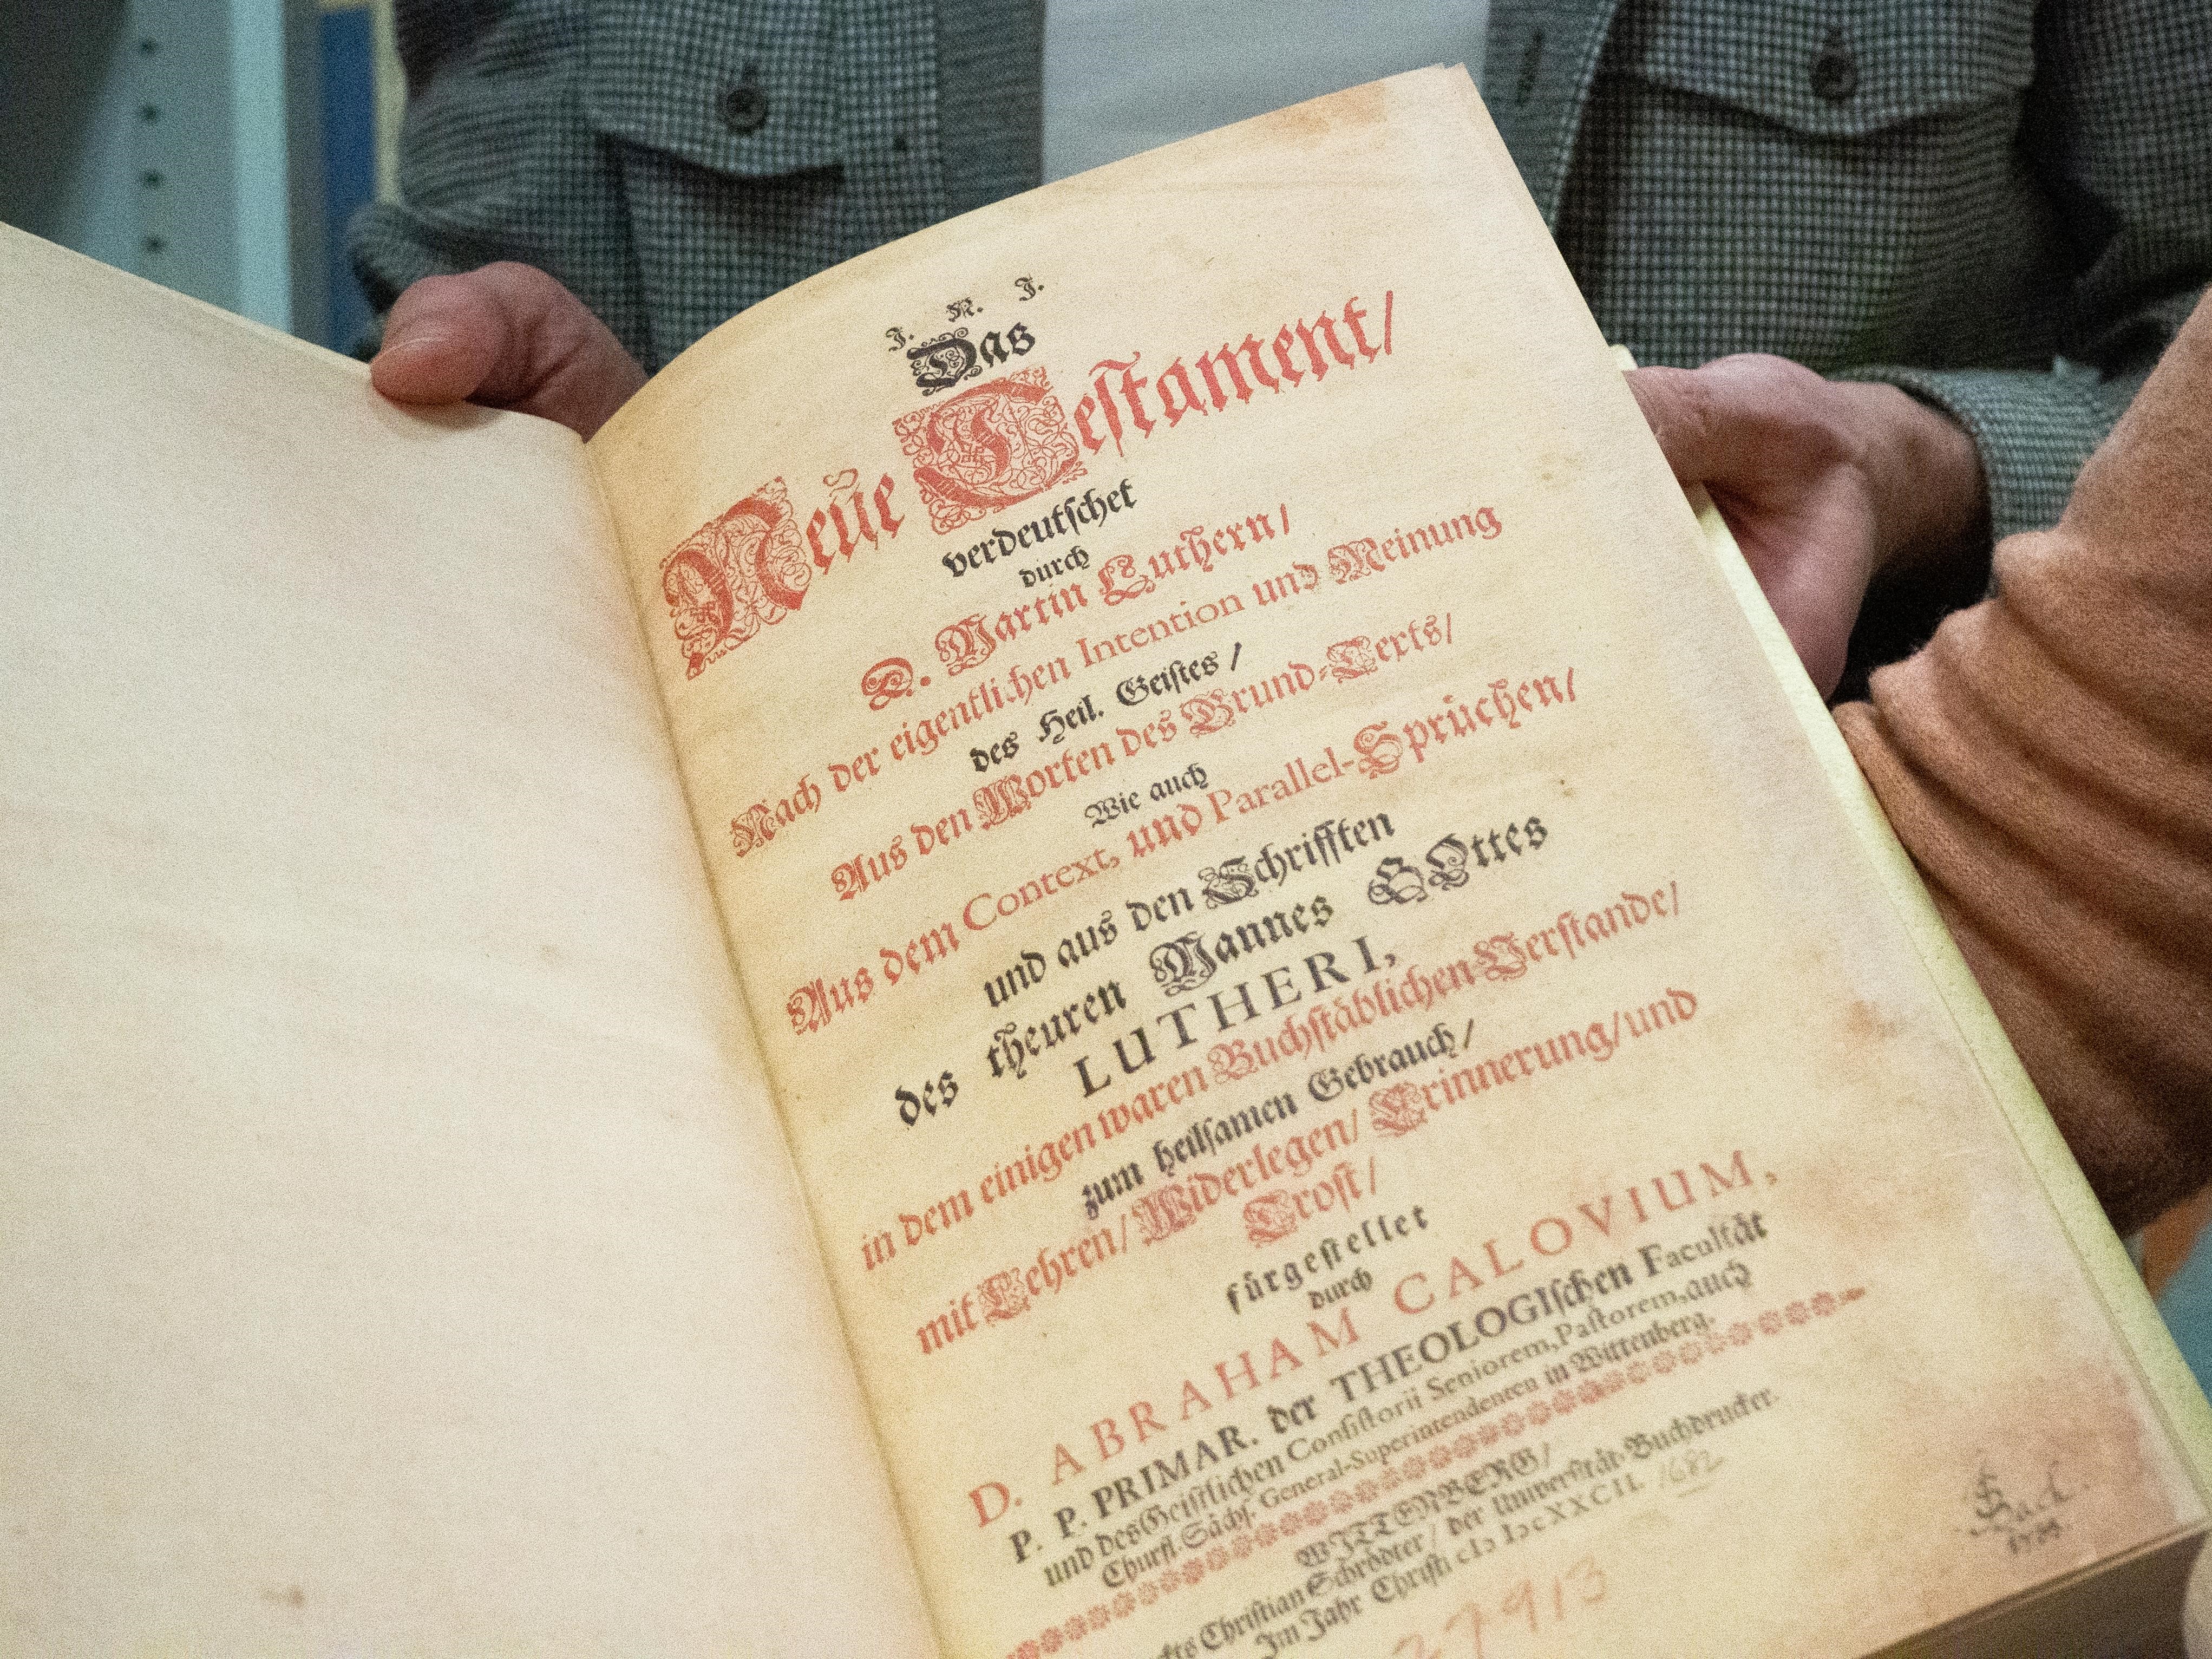 J. N. J.
Das
Neüe Teſtament/
verdeutſchet
durch
D. Martin Luthern/
Nach der eigentlichen Intention und Meinung
des Heil. Geiſtes/
Aus den Worten des Grund-Texts/
Wie auch
Aus dem Context, und Parallel-Sprüchen/
und aus den Schrifften
des theuren Mannes GOttes
LUTHERI,
in dem einigen waren Buchſtäblichen Verſtande/
zum heilſamen Gebrauch/
mit Lehren/ Widerlegen/ Erinnerung/ und
Troſt/
fürgeſtellet
durch
D. ABRAHAM CALOVIUM,
P. P. PRIMAR. der THEOLOGIſchen Facultät
und des Geiſtlichen Conſiſtorii Seniorem, Paſtorem, auch
Churfl. Sächſ. General-Superintendenten in Wittenberg.
WITTENBERG/
Chriſtian Schrödter/ der Univerſität Buchdrucker.
Im Jahr Chriſti cIɔ Iɔc XXCII. 1682
37913
JSBach.
1733